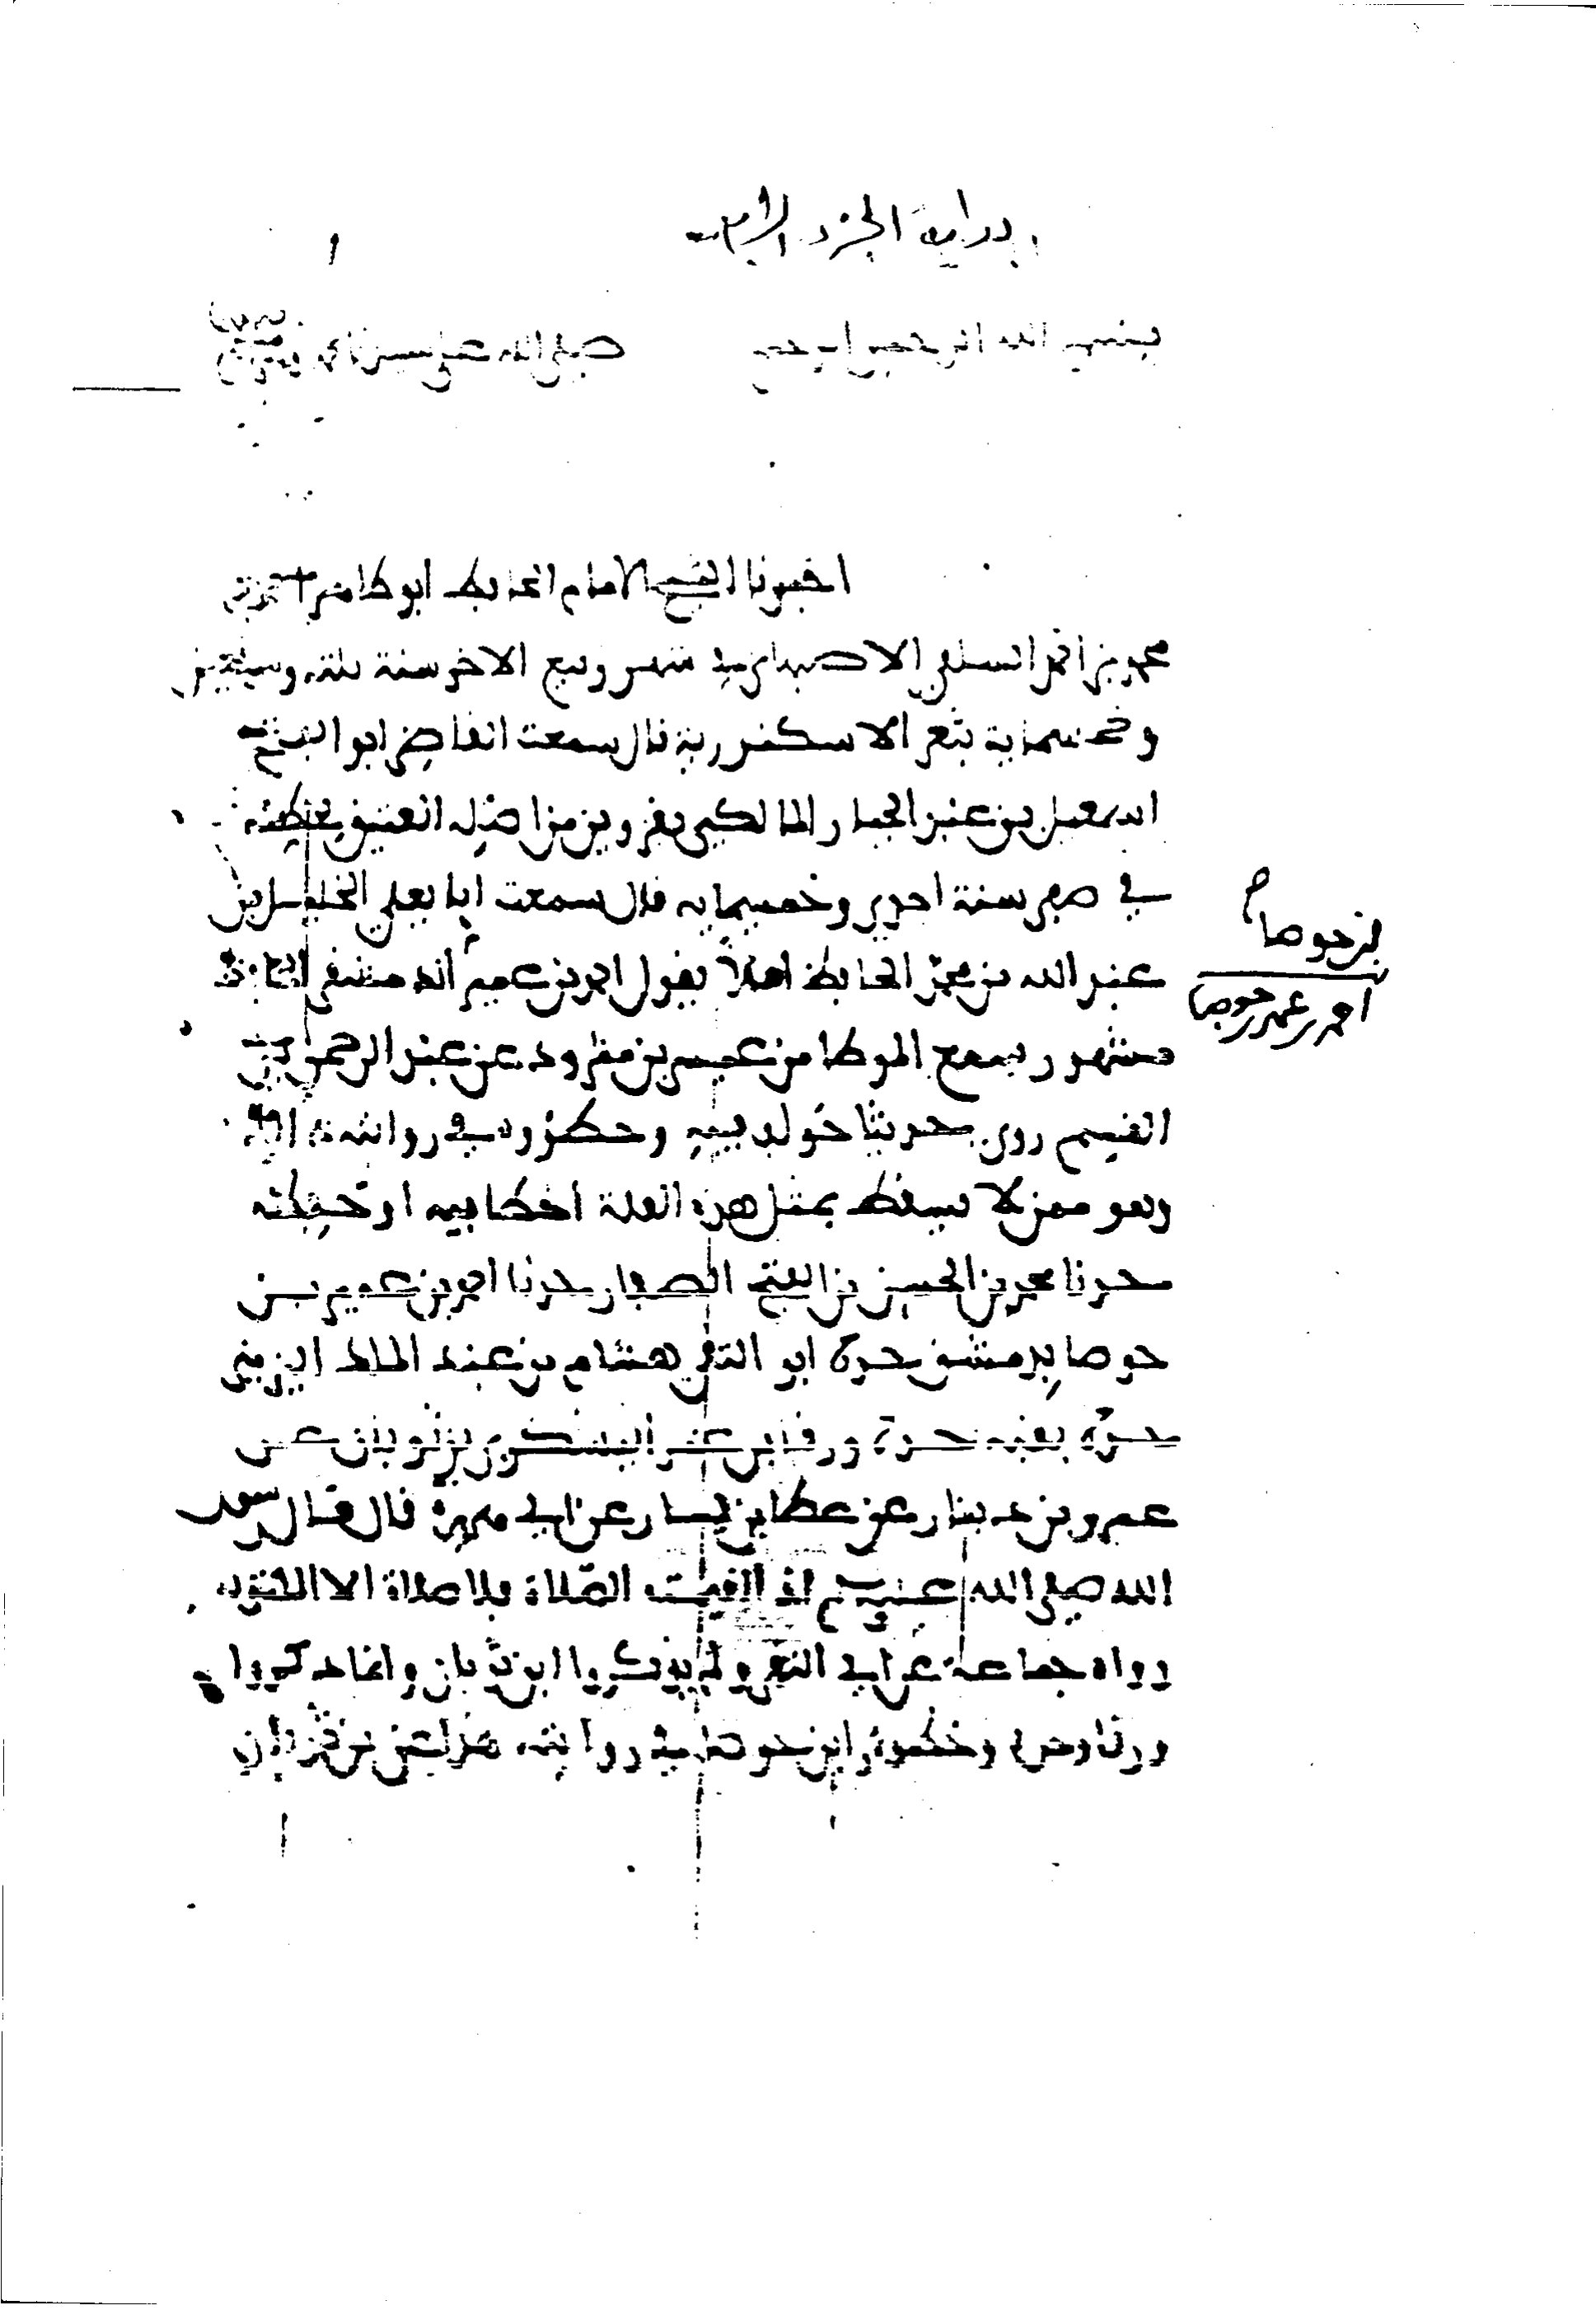 بداية الجزء الرابع
١
بسم الله الرحمن الرحيم صلى الله على سيدنا محمد
اخبرنا الشيخ الامام الحافظ ابو طاهر احمد بن
محمد بن احمد السلفي الاصبهاني في شهر ربيع الاخر سنة ثلث وسبعين
وخمسماية بثغر الاسكندرية قال سمعت القاضي ابو الفتح
اسمعيل بن عبد الجبار المالكي بقزوين من اصله العتيق بخطه
في صفر سنة احدى وخمسماية قال سمعت ابا يعلى الخليل بن
عبد الله بن محمد الحافظ املاً يقول احمد بن عمير الدمشقي الحافظ
مشهور سمع الموطا من عيسى بن مثرود عن عبد الرحمن بن
القسم روى حديثا خولف فيه وحكوه في روايته
وهو ممن لا يسقط بمثل هذه العلة اخطا فيه او حفظه
حدثنا محمد بن الحسين بن الفتح الصفار حدثنا احمد بن عمير بن
حوصا بدمشق حدثنا ابو التقي هشام بن عبد الملك اليزني
حدثنا بقية حدثنا ورقا بن عمر اليشكري بن ثوبان عن
عمرو بن دينار عن عطا بن يسار عن ابي هريرة قال قال رسول
الله صلى الله عليه وسلم اذا اقيمت الصلاة فلا صلاة الا المكتوبه
رواه جماعة عن ابي التقي ولم يذكروا ابن ثوبان وانما ذكروا
ورقا وحده وخطووا ابن حوصا في روايته عن ابن ثوبان
بن حوصا
احمد بن عمير بن حوصا